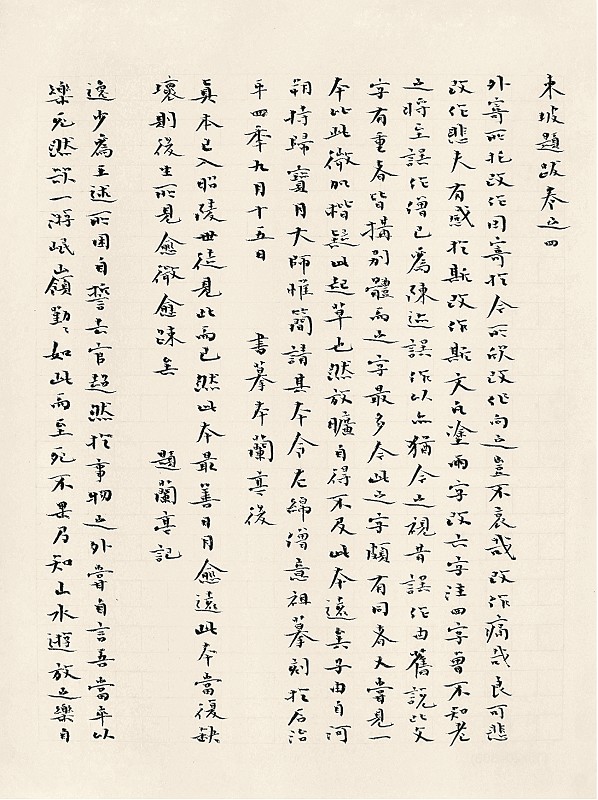 東坡題跋卷之四
外寄所托改作因寄於今所欣改作向之豈不哀哉改作痛哉良可悲
改作悲夫有感於斯改作斯文凡塗兩字改六字注四字曾不知老
之將至誤作僧已為陳迹誤作以亦猶今之視昔誤作由舊說此文
字有重者皆構別體而之字最多今此之字頗有同者又嘗見一
本比此微加楷疑此起草也然放曠自得不及此本遠矣子由自河
朔持歸寶月大師惟簡請其本令左綿僧意祖摹刻於石治
平四年九月十五日 書摹本蘭亭後
真本已入昭陵世徒見此而已然此本最善日月愈遠此本當復缺
壞則後生所見愈微愈疎矣 題蘭亭記
逸少為王述所困自誓去官超然於事物之外嘗自言吾當卒以
樂死然欲一游岷嶺勤〻如此而至死不果乃知山水遊放之樂自